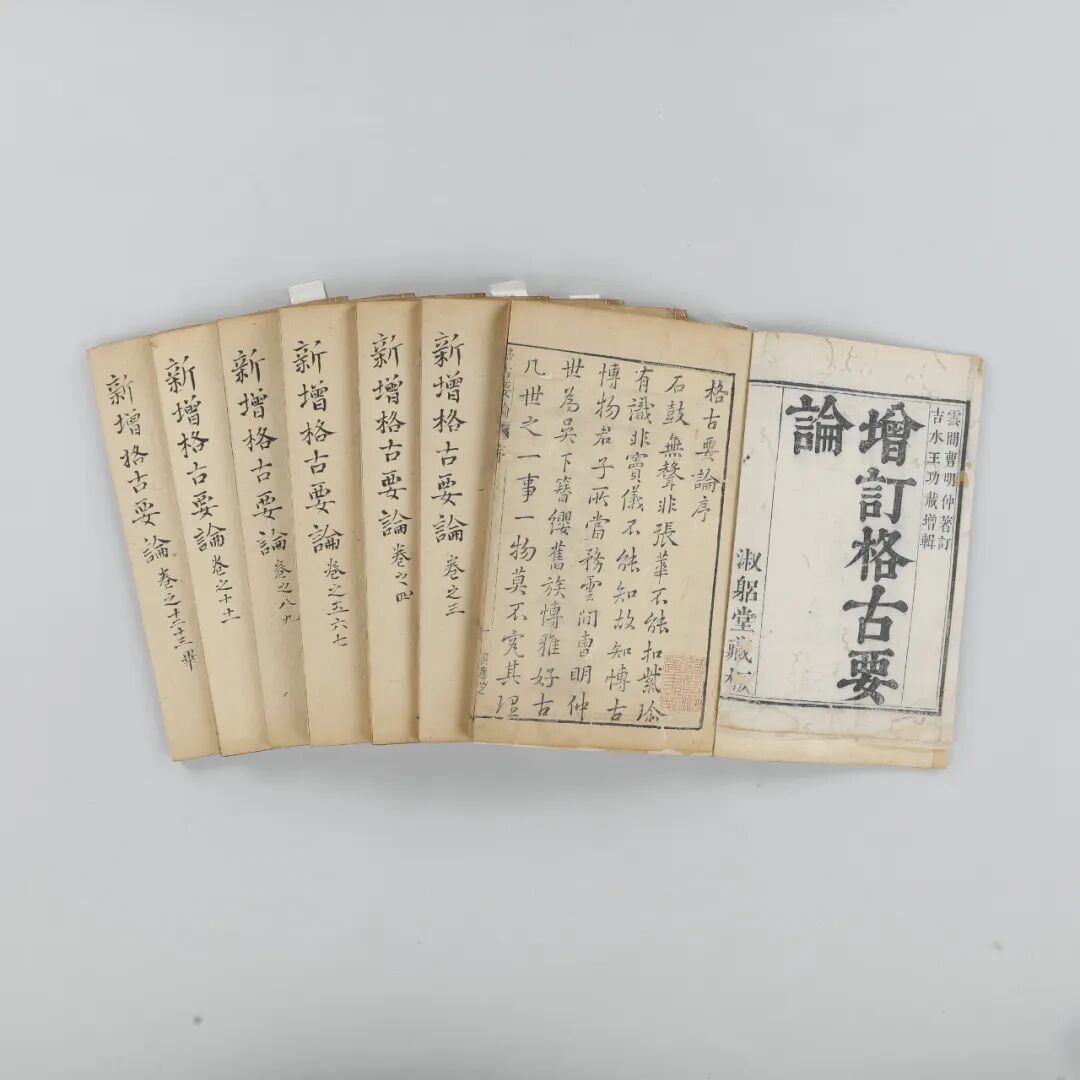 雲間曹明仲著訂
吉水王功載增輯
增訂格古要
論
淑躳堂藏板
格古要論序
石鼓無聲非張華不能扣紫珍
有識非竇儀不能知故知博古
博物君子所當務雲間曹明仲
世為吳下簪纓舊族博雅好古
凡世之一事一物莫不究其理
新增格古要論 卷之三
新增格古要論 卷之四
新增格古要論 卷之五六七
新增格古要論 卷之八九
新增格古要論 卷之十十一
新增格古要論 卷之十二十三畢